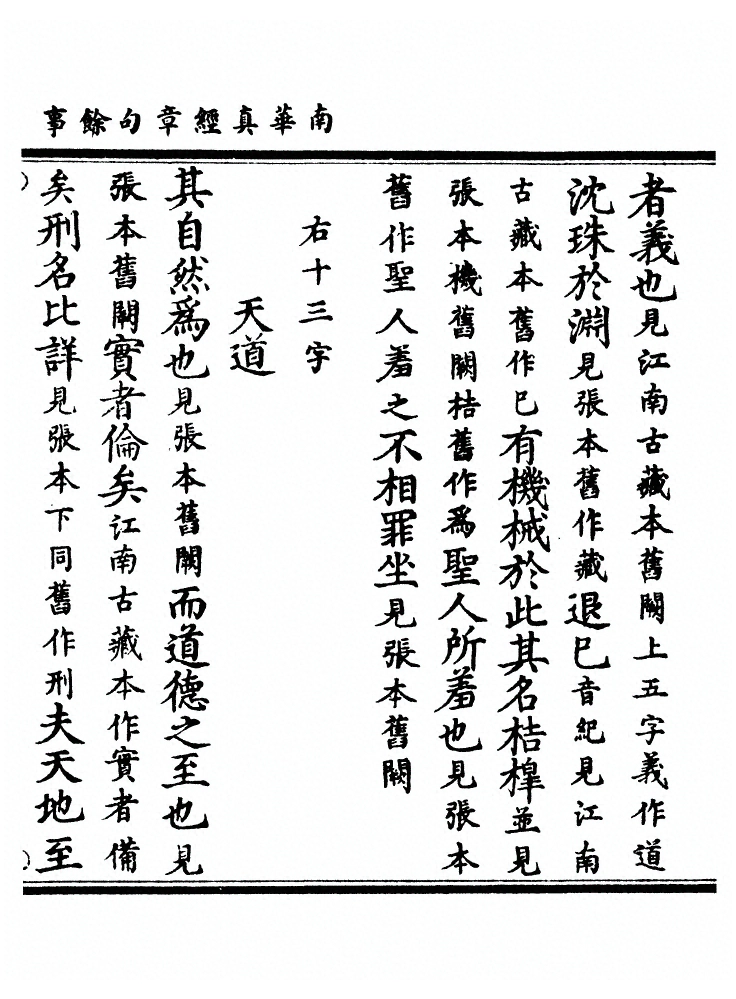 南華真經章句餘事
者義也見江南古藏本舊闕上五字義作道
沈珠於淵見張本舊作藏退已音紀見江南
古藏本舊作巳有機械於此其名桔槹並見
張本機舊闕桔舊作為聖人所羞也見張本
舊作聖人羞之不相罪坐見張本舊闕
右十三字
天道
其自然為也見張本舊闕而道德之至也見
張本舊闕實者倫矣江南古藏本作實者備
矣刑名比詳見張本下同舊作刑夫天地至